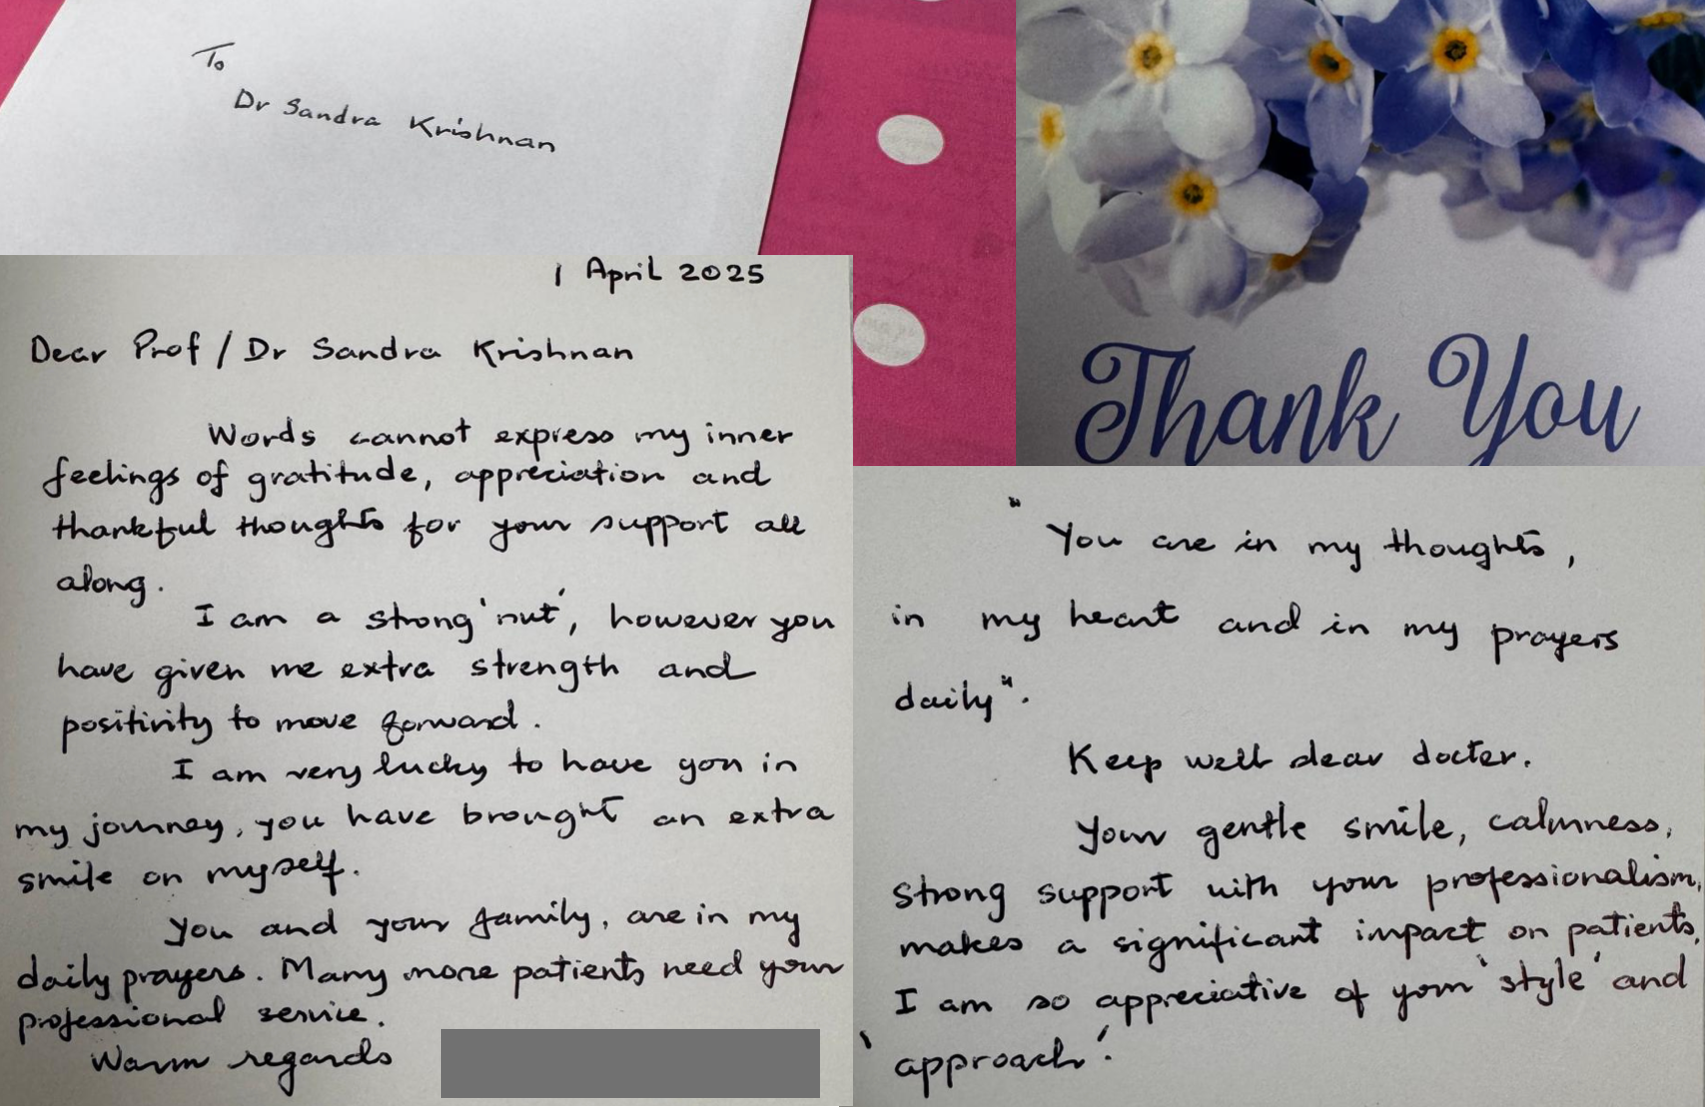 To
Dr Sandra Krishnan
Thank You
1 April 2025
Dear Prof / Dr Sandra Krishnan
Words cannot express my inner
feelings of gratitude, appreciation and
thankful thoughts for your support all
along.
I am a strong 'nut', however you
have given me extra strength and
positivity to move forward.
I am very lucky to have you in
my journey, you have brought an extra
smile on myself.
You and your family, are in my
daily prayers. Many more patients need your
professional service.
Warm regards
"You are in my thoughts,
in my heart and in my prayers
daily".
Keep well dear docter.
Your gentle smile, calmness,
strong support with your professionalism,
makes a significant impact on patients,
I am so appreciative of your 'style' and
'approach'.